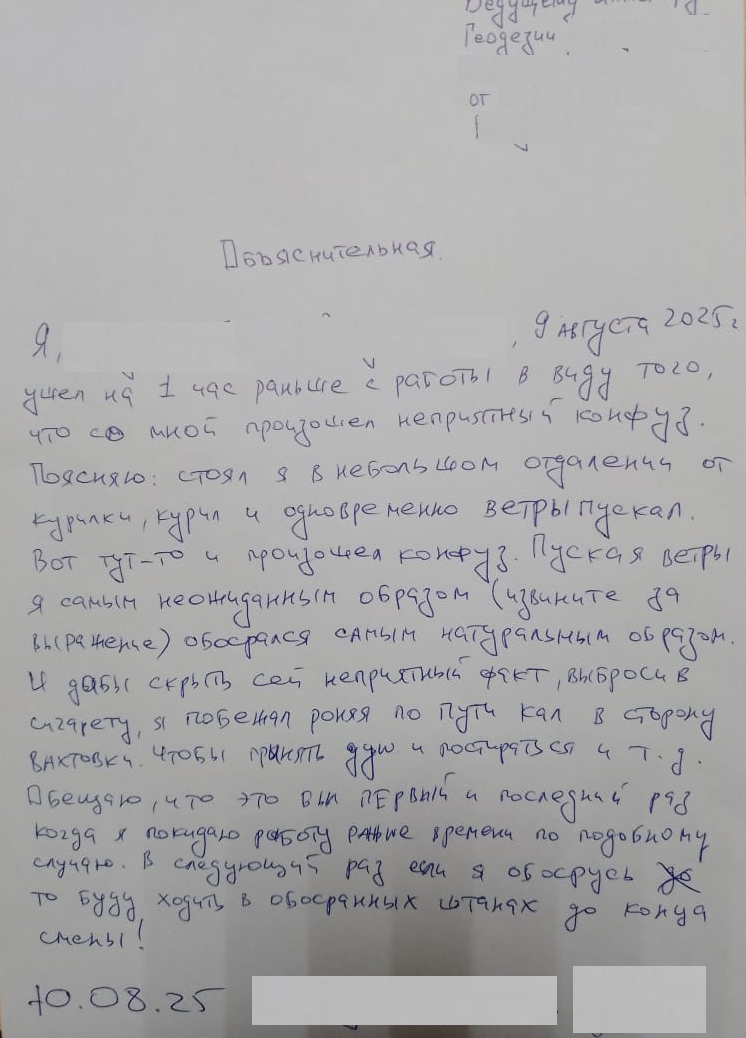 Ведущему
Геодезии.
от
Объяснительная.
Я, , 9 августа 2025г
ушел на 1 час раньше с работы в виду того,
что со мной произошел неприятный конфуз.
Поясняю: стоял я в небольшом отдалении от
курилки, курил и одновременно ветры пускал.
Вот тут-то и произошел конфуз. Пуская ветры
я самым неожиданным образом (извините за
выражение) обосрался самым натуральным образом.
И дабы скрыть сей неприятный факт, выбросив
сигарету, я побежал роняя по пути кал в сторону
вахтовки. Чтобы принять душ и постираться и т.д.
Обещаю, что это был первый и последний раз
когда я покидаю работу раньше времени по подобному
случаю. В следующий раз если я обосрусь
то буду ходить в обосранных штанах до конца
смены!
10.08.25